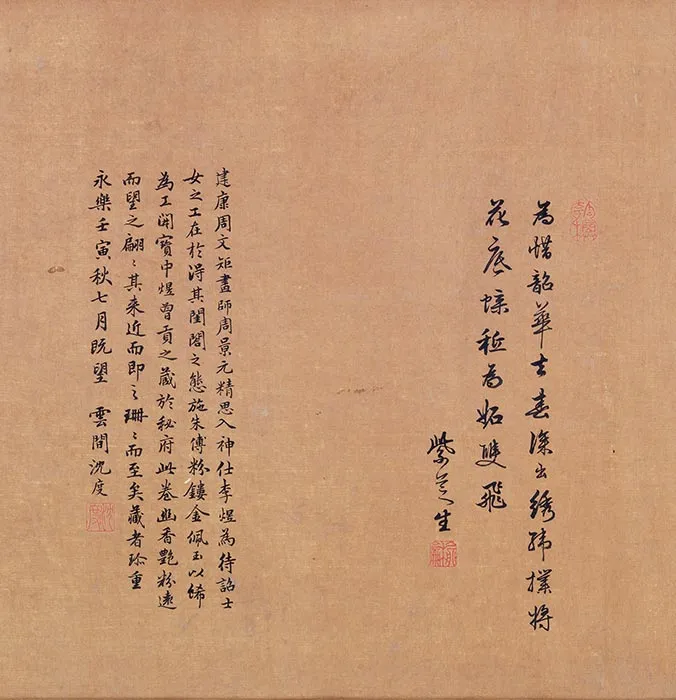 為惜韶華去春深出綉幃撲將
花底蝶秪為妬雙飛
紫芝生
建康周文矩畫師周景元精思入神仕李煜為待詔士
女之工在於得其閨閤之態施朱傅粉鏤金佩玉以飾
為工開寶中煜曾貢之藏於秘府此卷幽香艷粉遠
而望之翩〻其来近而即之珊〻而至矣藏者珍重
永樂壬寅秋七月既望 雲間沈度